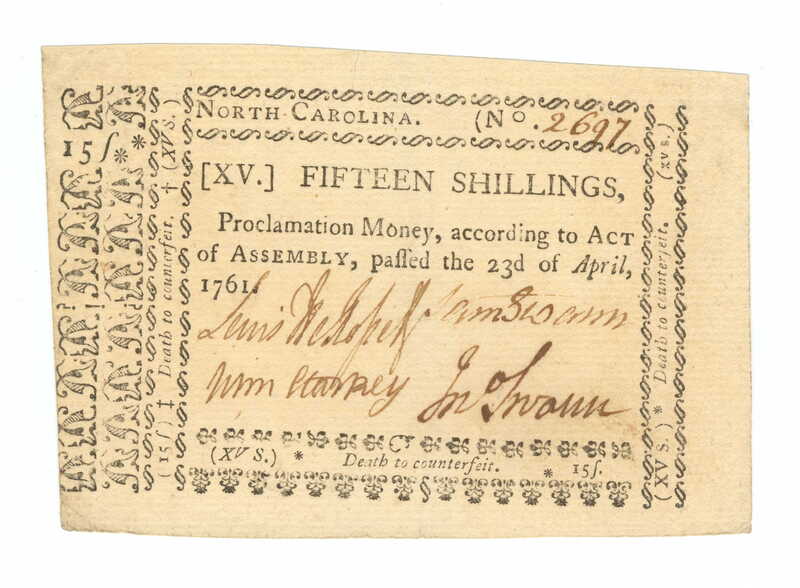 NORTH-CAROLINA. (No. 2697
15ſ**
[XV.] FIFTEEN SHILLINGS,
Proclamation Money, according to ACT
of ASSEMBLY, paſſed the 23d of April,
1761.
Lewis DeRosset Sam Swann
Jno Swann
(XV S.) * Death to counterfeit. * 15ſ.
(15ſ) ‡ Death to counterfeit. † (XV S.)
(XV S.) * Death to counterfeit. (XV S.)